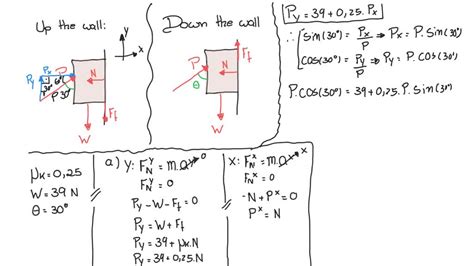 Up the wall:
y
x
Py
Px
P
60°
30°
P
30°
N
Ff
W
Down the wall
Ff
P
θ
N
W
Py = 39 + 0,25. Px
∴ sin(30°) = Px/P ⇒ Px = P. sin(30°)
cos(30°) = Py/P ⇒ Py = P. cos(30°)
P. cos(30°) = 39 + 0,25. P. sin(30°)
μk = 0,25
W = 39 N
θ = 30°
a) y: F_N^y = m.a^y 0
F_N^y = 0
Py - W - Ff = 0
Py = W + Ff
Py = 39 + μk.N
Py = 39 + 0,25.N
x: F_N^x = m.a^x 0
F_N^x = 0
-N + P^x = 0
P^x = N